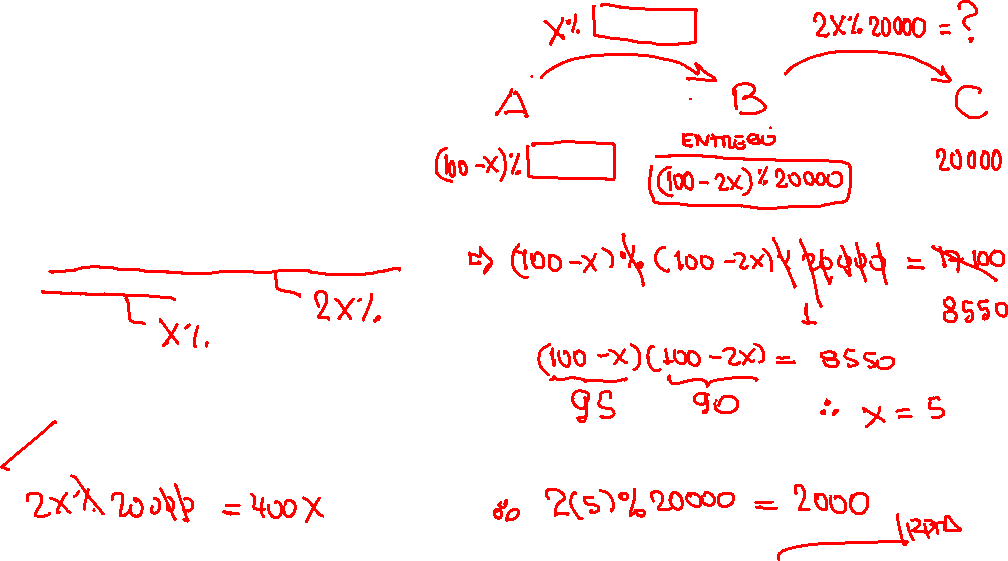 x% 2x% 20000 = ?
A B C
ENTREGÓ
(100-x)% (100-2x)% 20000 20000
⇒ (100-x)% (100-2x)% 20000 = 17100
1 8550
2x%
x%
(100-x)(100-2x) = 8550
95 90 ∴ x = 5
2x% 20000 = 400x
∴ 2(5)% 20000 = 2000
RPTA